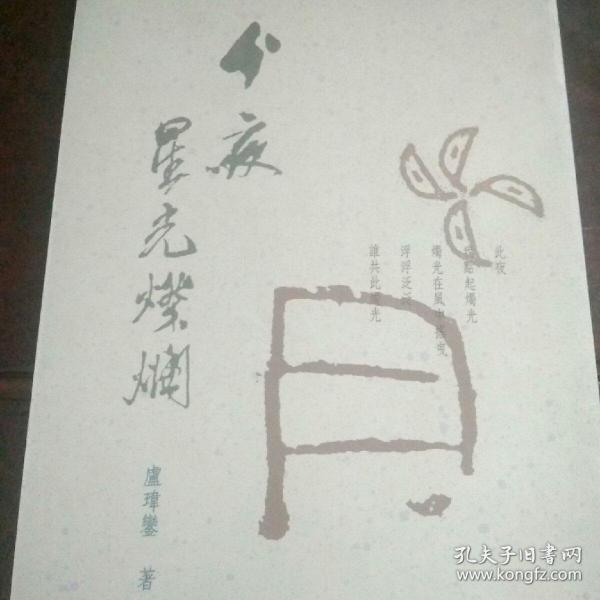 此夜
點起燭光
燭光在風中搖曳
浮浮泛
誰共此 光
今夜
星光燦爛
盧瑋鑾 著
孔夫子旧书网
www.kongfz.com